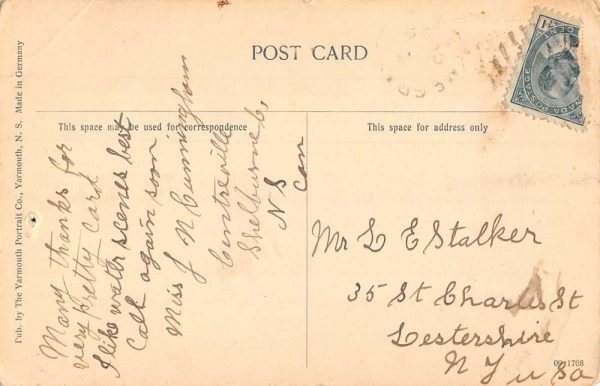 POST CARD
This space may be used for correspondence
This space for address only
Pub. by The Yarmouth Portrait Co., Yarmouth, N. S. Made in Germany
Many thanks for
very pretty card
I like water scenes best
Call again soon
Miss J N Cunningham
Centreville
Shelburne Co
N S
Can
Mr L E Stalker
35 St Charles St
Lestershire
N Y U S a
09 1708